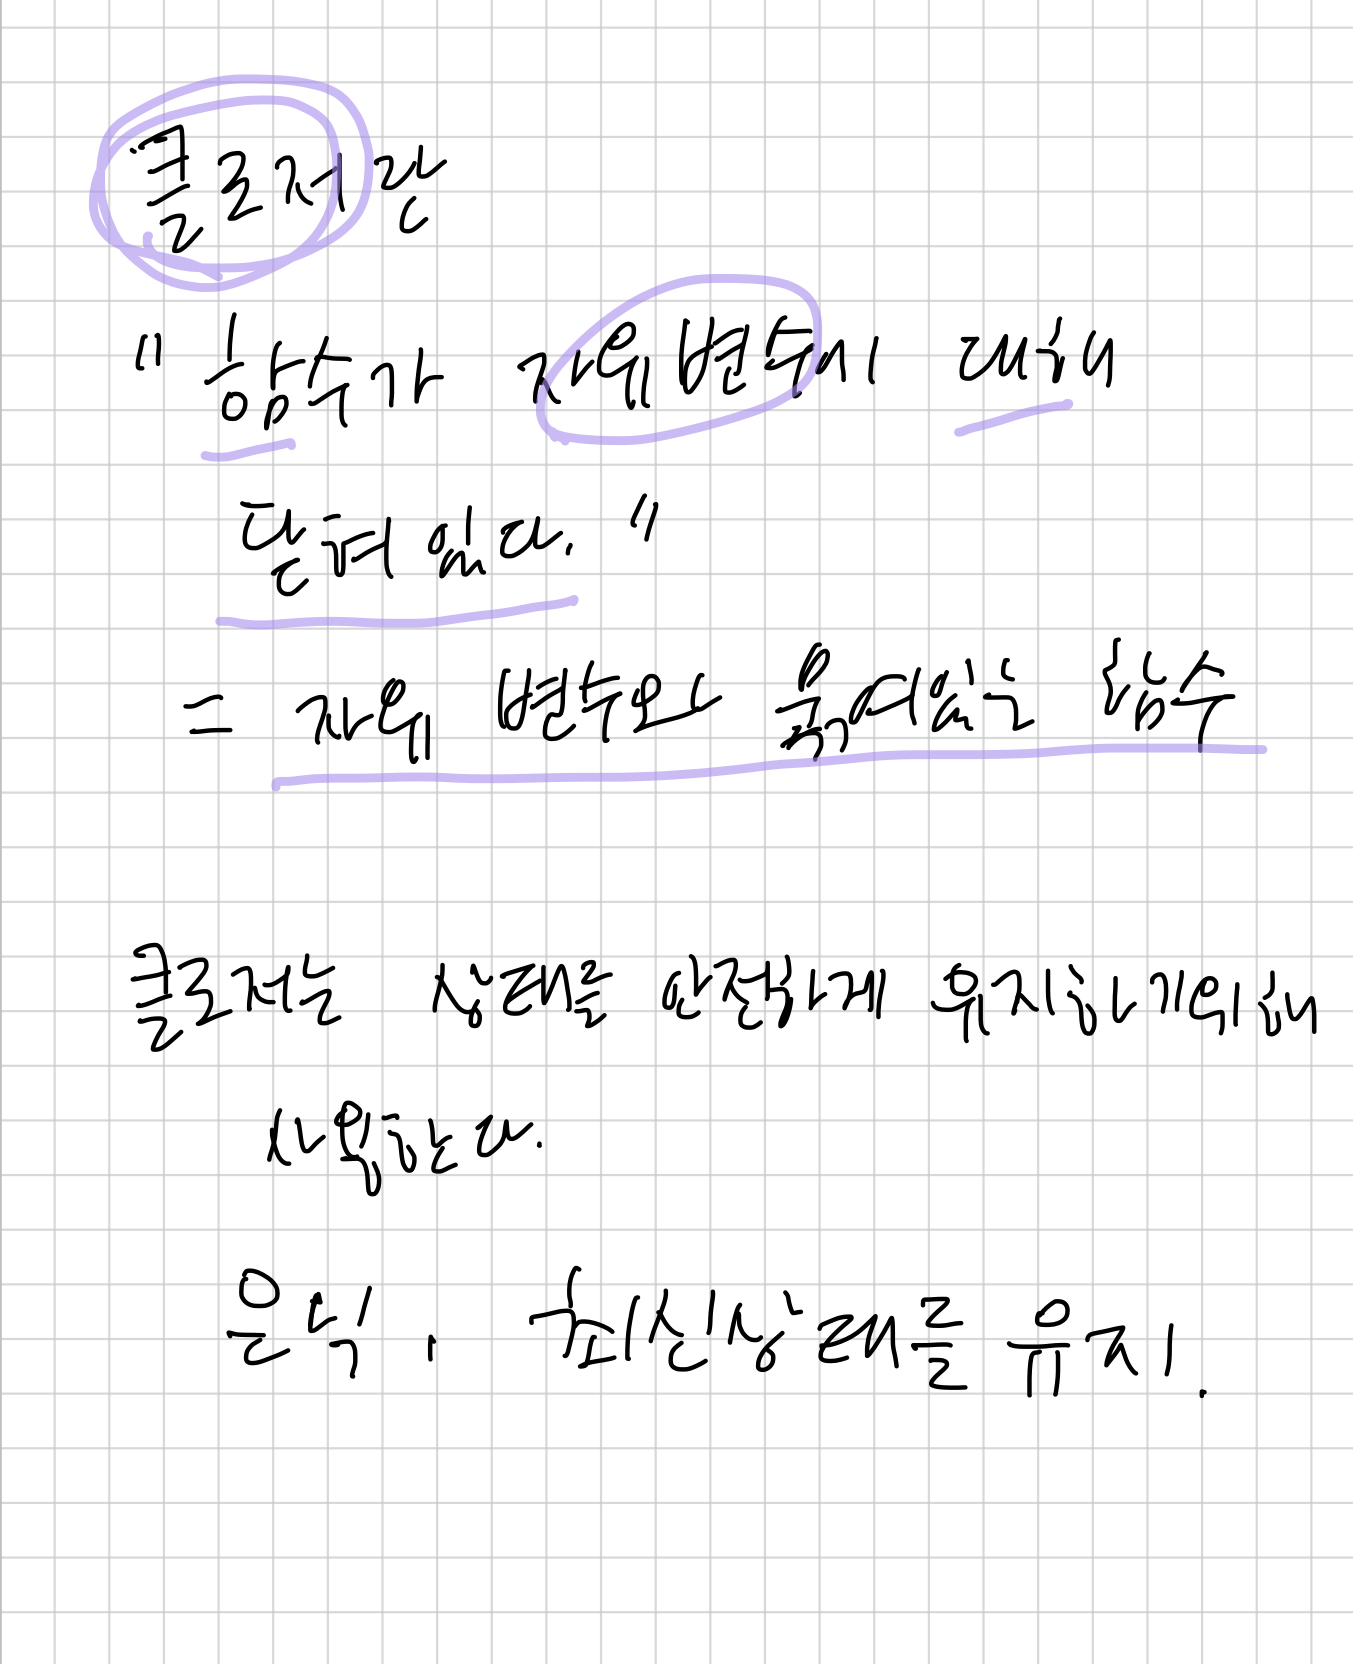 클로저란
"함수가 자유변수에 대해
닫혀있다."
= 자유 변수와 묶여있는 함수
클로저는 상태를 안전하게 유지하기위해
사용한다.
은닉, 최신상태를 유지.